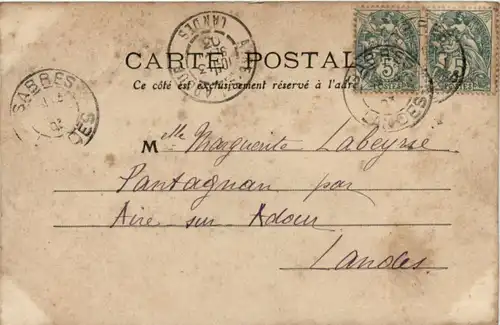 CARTE POSTALE
Ce côté est exclusivement réservé à l'adre
SABRES
LANDES
5
5
POSTES
SABRES
LANDES
Mlle Marguerite Labeyrie
Pantagnan par
Aire sur Adour
Landes